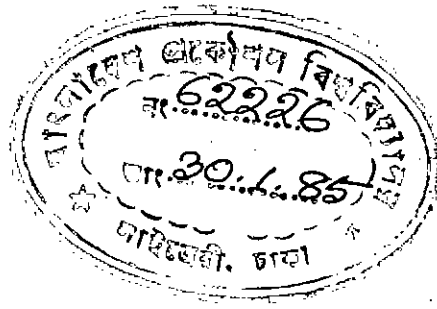 বাংলাদেশ প্রকৌশল বিশ্ববিদ্যালয়
নং. 62226
তাং. 30.6.85
লাইব্রেরী. ঢাকা